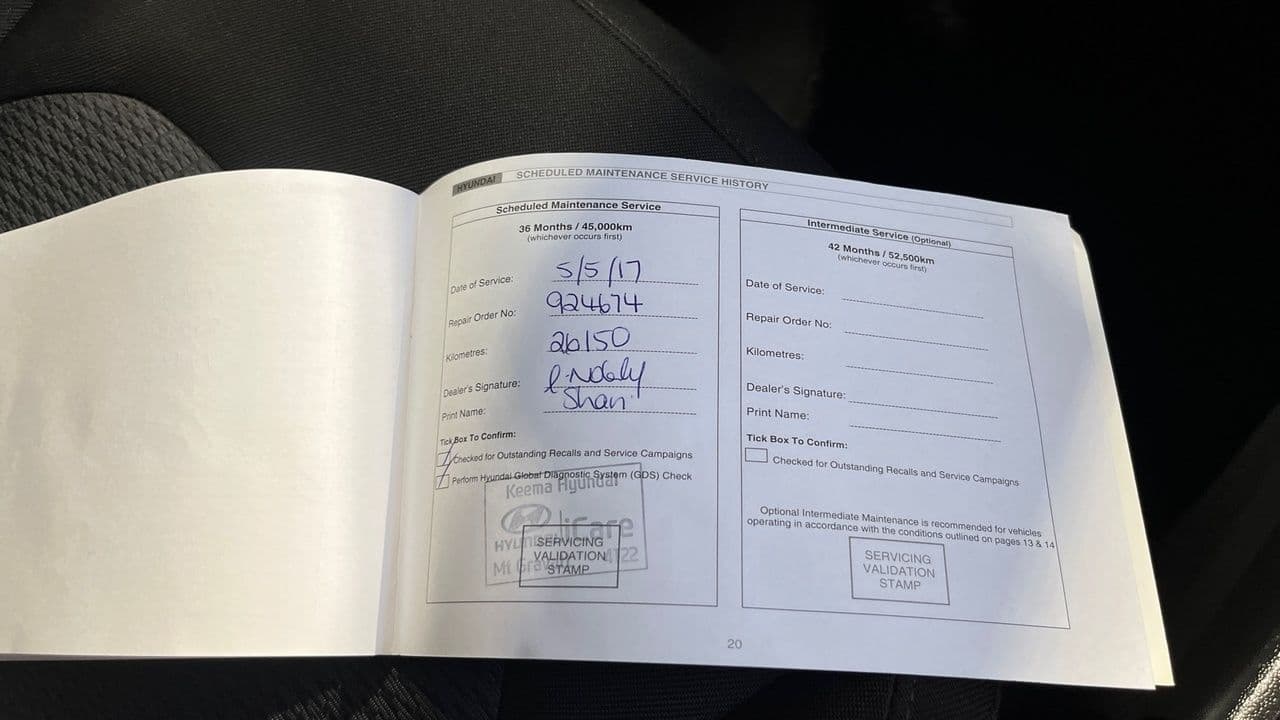 HYUNDAI SCHEDULED MAINTENANCE SERVICE HISTORY
Scheduled Maintenance Service
36 Months / 45,000km
(whichever occurs first)
Date of Service: 5/5/17
Repair Order No: 924674
Kilometres: 26150
Dealer's Signature:
Print Name: Shan
Tick Box To Confirm:
Checked for Outstanding Recalls and Service Campaigns
Perform Hyundai Global Diagnostic System (GDS) Check
Keema Hyundai
iCare
SERVICING
VALIDATION
STAMP
4122
Intermediate Service (Optional)
42 Months / 52,500km
(whichever occurs first)
Date of Service:
Repair Order No:
Kilometres:
Dealer's Signature:
Print Name:
Tick Box To Confirm:
Checked for Outstanding Recalls and Service Campaigns
Optional Intermediate Maintenance is recommended for vehicles
operating in accordance with the conditions outlined on pages 13 & 14
SERVICING
VALIDATION
STAMP
20